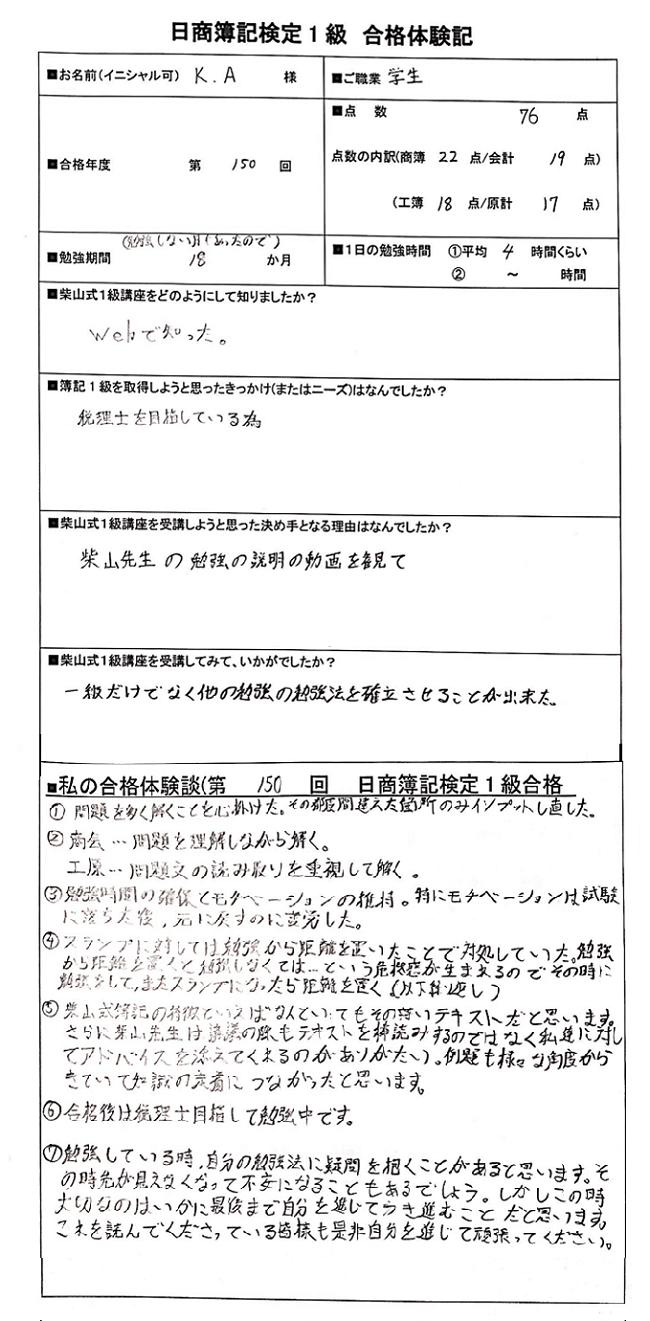 日商簿記検定1級 合格体験記
■お名前(イニシャル可) K.A 様
■ご職業 学生
■合格年度 第 150 回
■点 数 76 点
点数の内訳(商簿 22 点/会計 19 点)
(工簿 18 点/原計 17 点)
(勉強しない月があったので)
■勉強期間 18 か月
■1日の勉強時間 ①平均 4 時間くらい
② ～ 時間
■柴山式1級講座をどのようにして知りましたか？
Webで知った。
■簿記1級を取得しようと思ったきっかけ(またはニーズ)はなんでしたか？
税理士を目指している為
■柴山式1級講座を受講しようと思った決め手となる理由はなんでしたか？
柴山先生の勉強の説明の動画を観て
■柴山式1級講座を受講してみて、いかがでしたか？
一級だけでなく他の勉強の勉強法を確立させることが出来た。
■私の合格体験談(第 150 回 日商簿記検定1級合格
① 問題を多く解くことを心掛けた。その都度間違えた箇所のみインプットし直した。
② 商会…問題を理解しながら解く。
工原…問題文の読み取りを重視して解く。
③ 勉強時間の確保とモチベーションの維持。特にモチベーションは試験
に落ちた後、元に戻すのに苦労した。
④ スランプに対しては勉強から距離を置いたことで対処していた。勉強
から距離を置くと勉強しなくては…という危機感が生まえるのでその時に
勉強をして、またスランプになったら距離を置く(以下繰返し)
⑤ 柴山式簿記の特徴といえばなんといってもその薄いテキストだと思います。
さらに柴山先生は講義の際もテキストを棒読みするのではなく私達に対し
てアドバイスを添えてくよるのがありがたい。例題も様々な角度から
きていて知識の定着につながったと思います。
⑥ 合格後は税理士目指して勉強中です。
⑦ 勉強している時、自分の勉強法に疑問を抱くことがあると思います。そ
の時先が見えなくなって不安になることもあるでしょう。しかしこの時
大切なのはいかに最後まで自分を信じてつき進むことだと思います。
これを読んでくださっている皆様も是非自分を信じて頑張ってください。